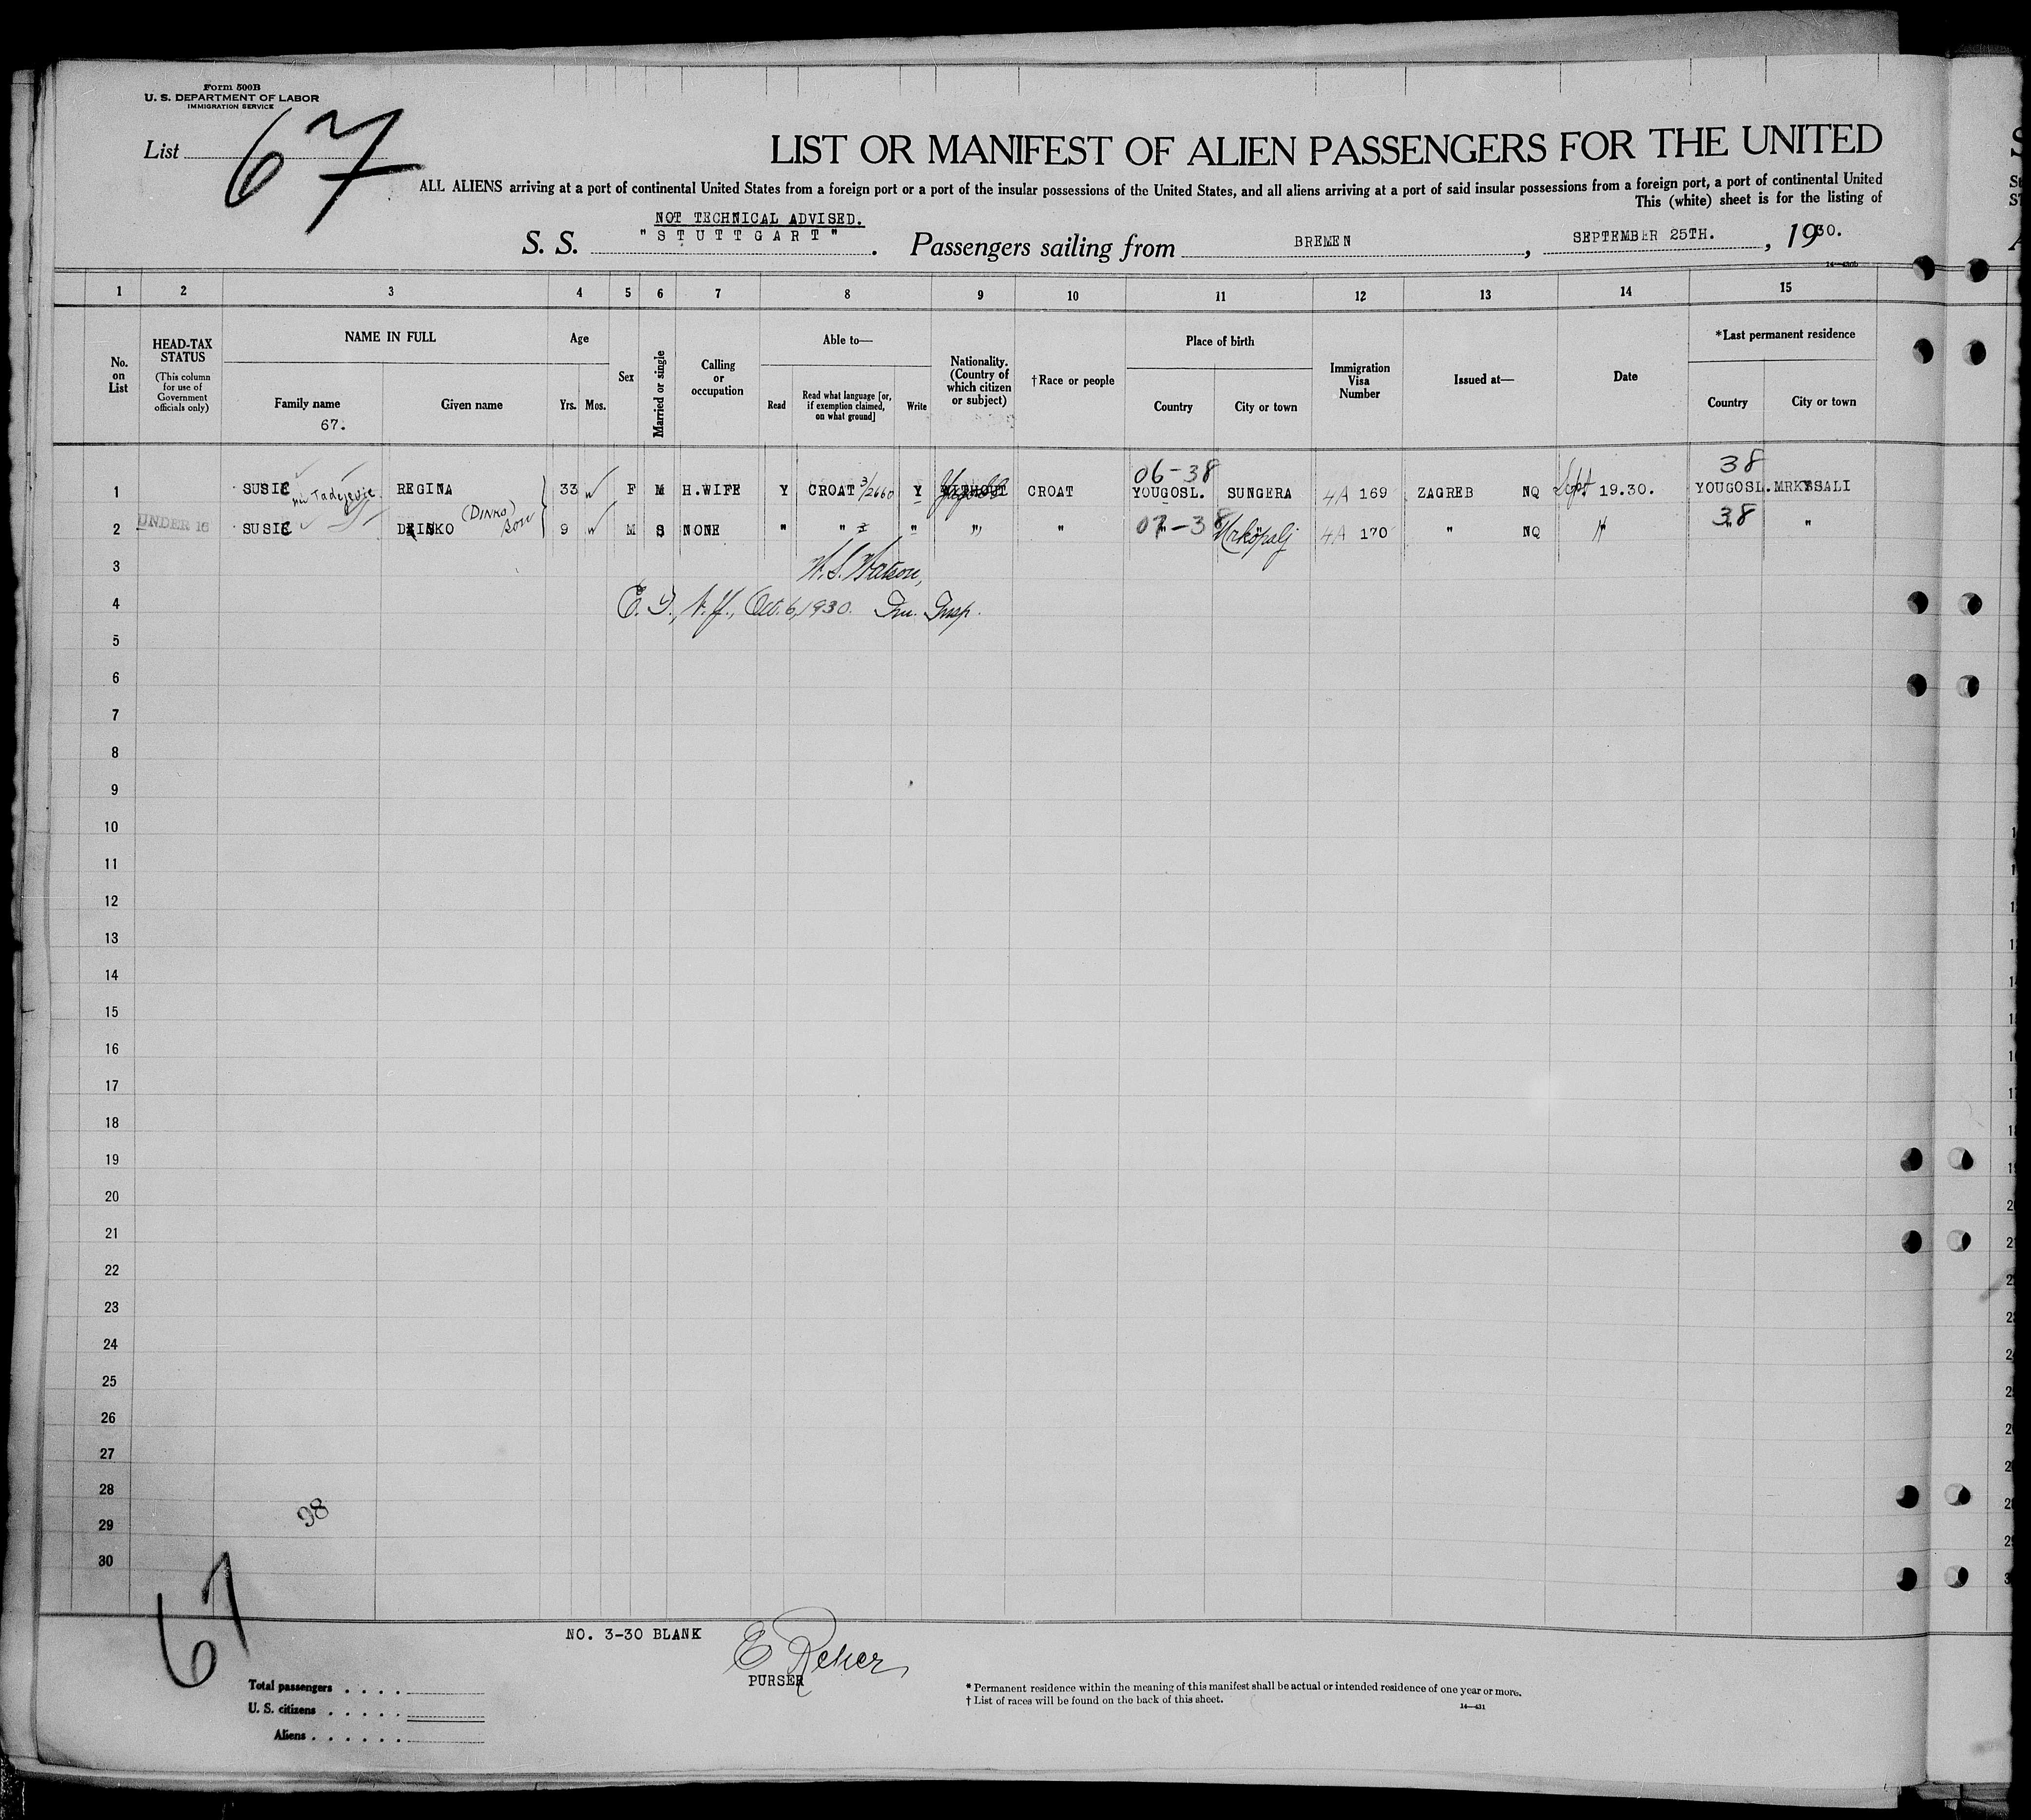 Form 500B
U. S. DEPARTMENT OF LABOR
IMMIGRATION SERVICE
List 67
LIST OR MANIFEST OF ALIEN PASSENGERS FOR THE UNITED
ALL ALIENS arriving at a port of continental United States from a foreign port or a port of the insular possessions of the United States, and all aliens arriving at a port of said insular possessions from a foreign port, a port of continental United
This (white) sheet is for the listing of
NOT TECHNICAL ADVISED.
S. S. "STUTTGART". Passengers sailing from BREMEN, SEPTEMBER 25TH., 1930.
1 2 3 4 5 6 7 8 9 10 11 12 13 14 15
No. on List
HEAD-TAX STATUS (This column for use of Government officials only)
NAME IN FULL
Family name
67.
Given name
Age
Yrs. Mos.
Sex
Married or single
Calling or occupation
Able to—
Read
Read what language [or, if exemption claimed, on what ground]
Write
Nationality. (Country of which citizen or subject)
†Race or people
Place of birth
Country
City or town
Immigration Visa Number
Issued at—
Date
*Last permanent residence
Country
City or town
06-38 38
1 SUSIC REGINA 33 F M H.WIFE Y CROAT 3/2660 Y CROAT YOUGOSL. SUNGERA 4A 169 ZAGREB NQ Sept 19.30. YOUGOSL. MRKSSALI
(DINKO) son
07-38 38
2 UNDER 16 SUSIC DINKO 9 M S NONE " " " " " Mrkopalj 4A 170 " NQ " " "
3 W. S. Watson,
4 Oct. 6, 1930. Im. Insp.
5
6
7
8
9
10
11
12
13
14
15
16
17
18
19
20
21
22
23
24
25
26
27
28
98
29
30
67
NO. 3-30 BLANK
E Reher
PURSER
Total passengers . . . .
U. S. citizens . . . . .
Aliens . . . . . .
* Permanent residence within the meaning of this manifest shall be actual or intended residence of one year or more.
† List of races will be found on the back of this sheet.
14—431